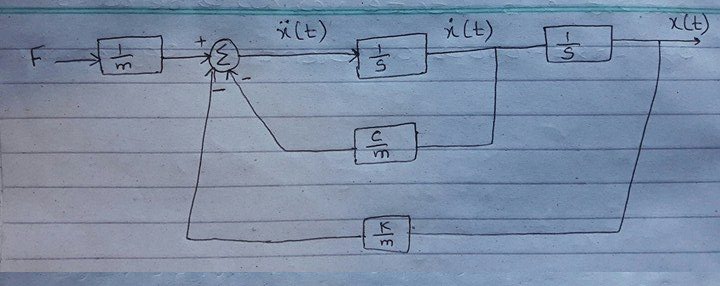 F 1/m + Σ ẍ(t) 1/S ẋ(t) 1/S x(t)
- -
C/m
K/m